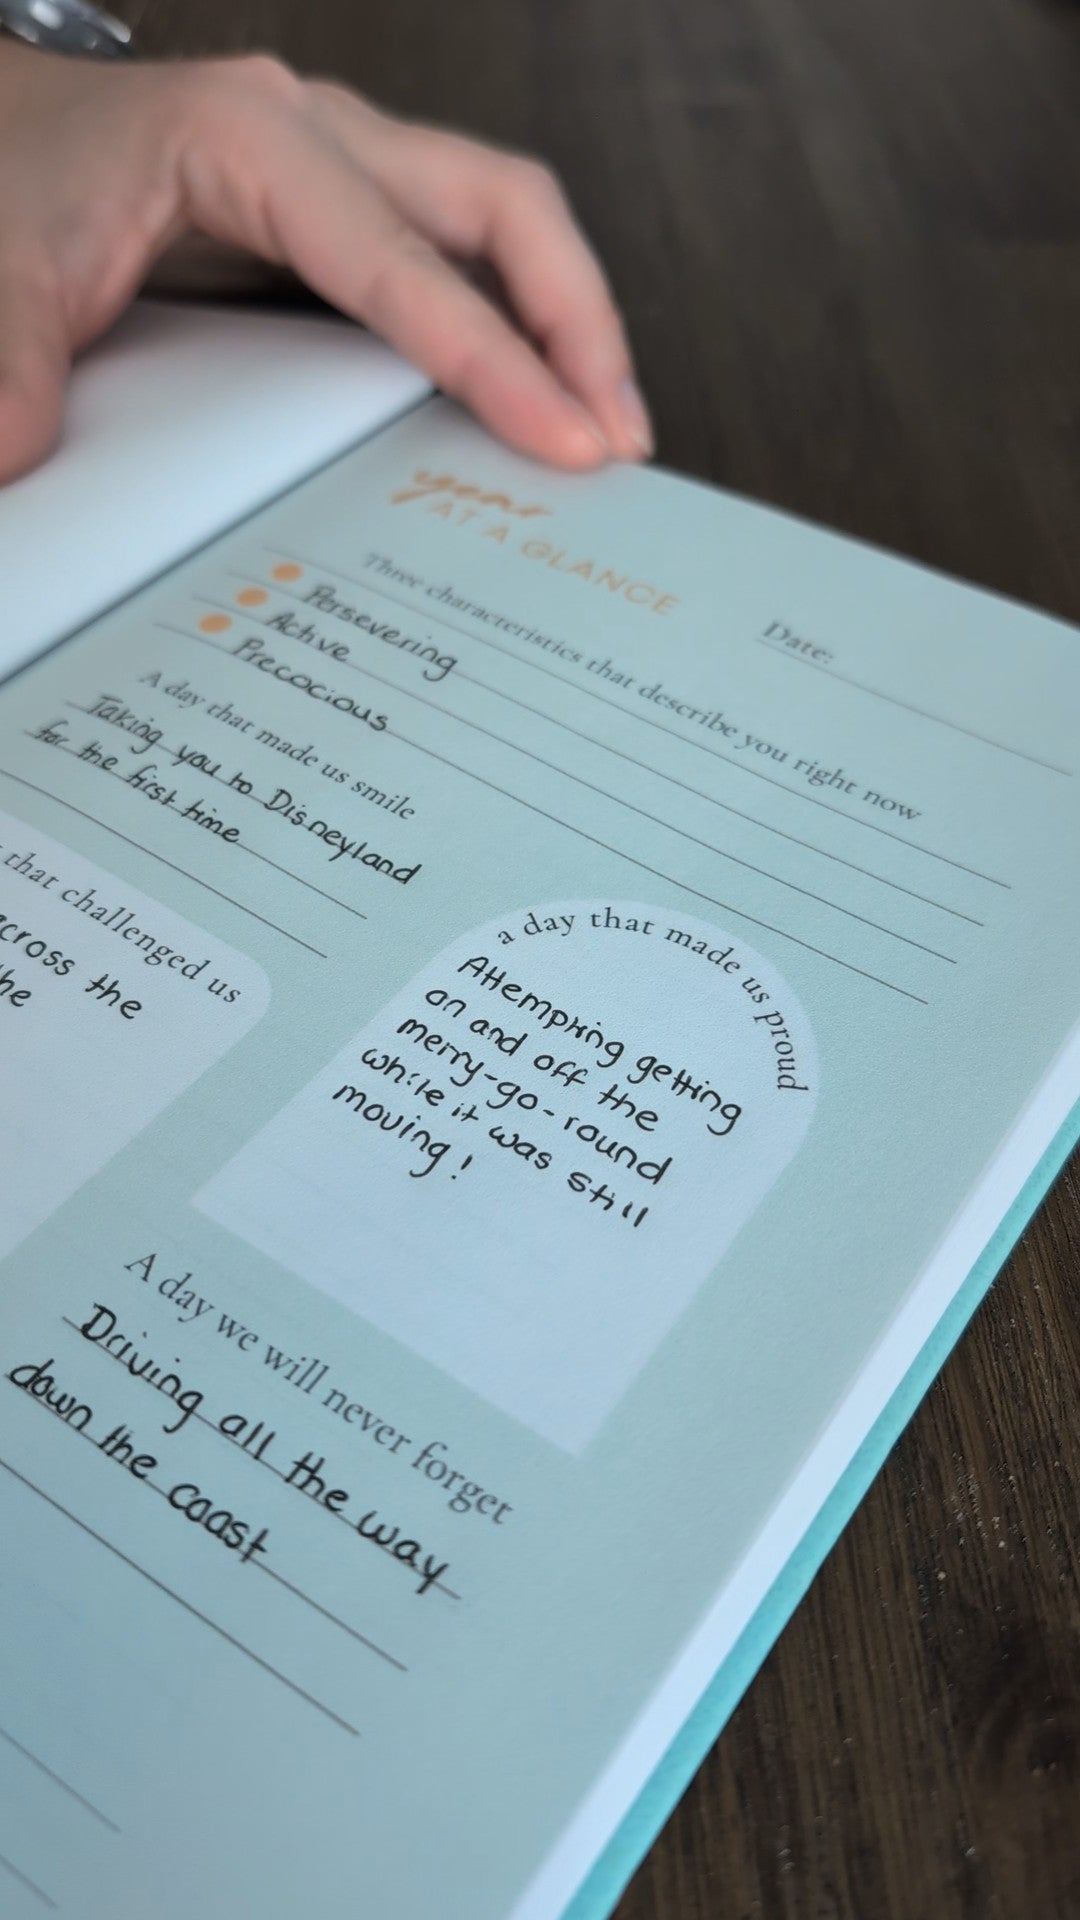 year
AT A GLANCE
Date:
Three characteristics that describe you right now
Persevering
Active
Precocious
A day that made us smile
Taking you to Disneyland
for the first time
that challenged us
across the
the
a day that made us proud
Attempting getting
on and off the
merry-go-round
while it was still
moving!
A day we will never forget
Driving all the way
down the coast